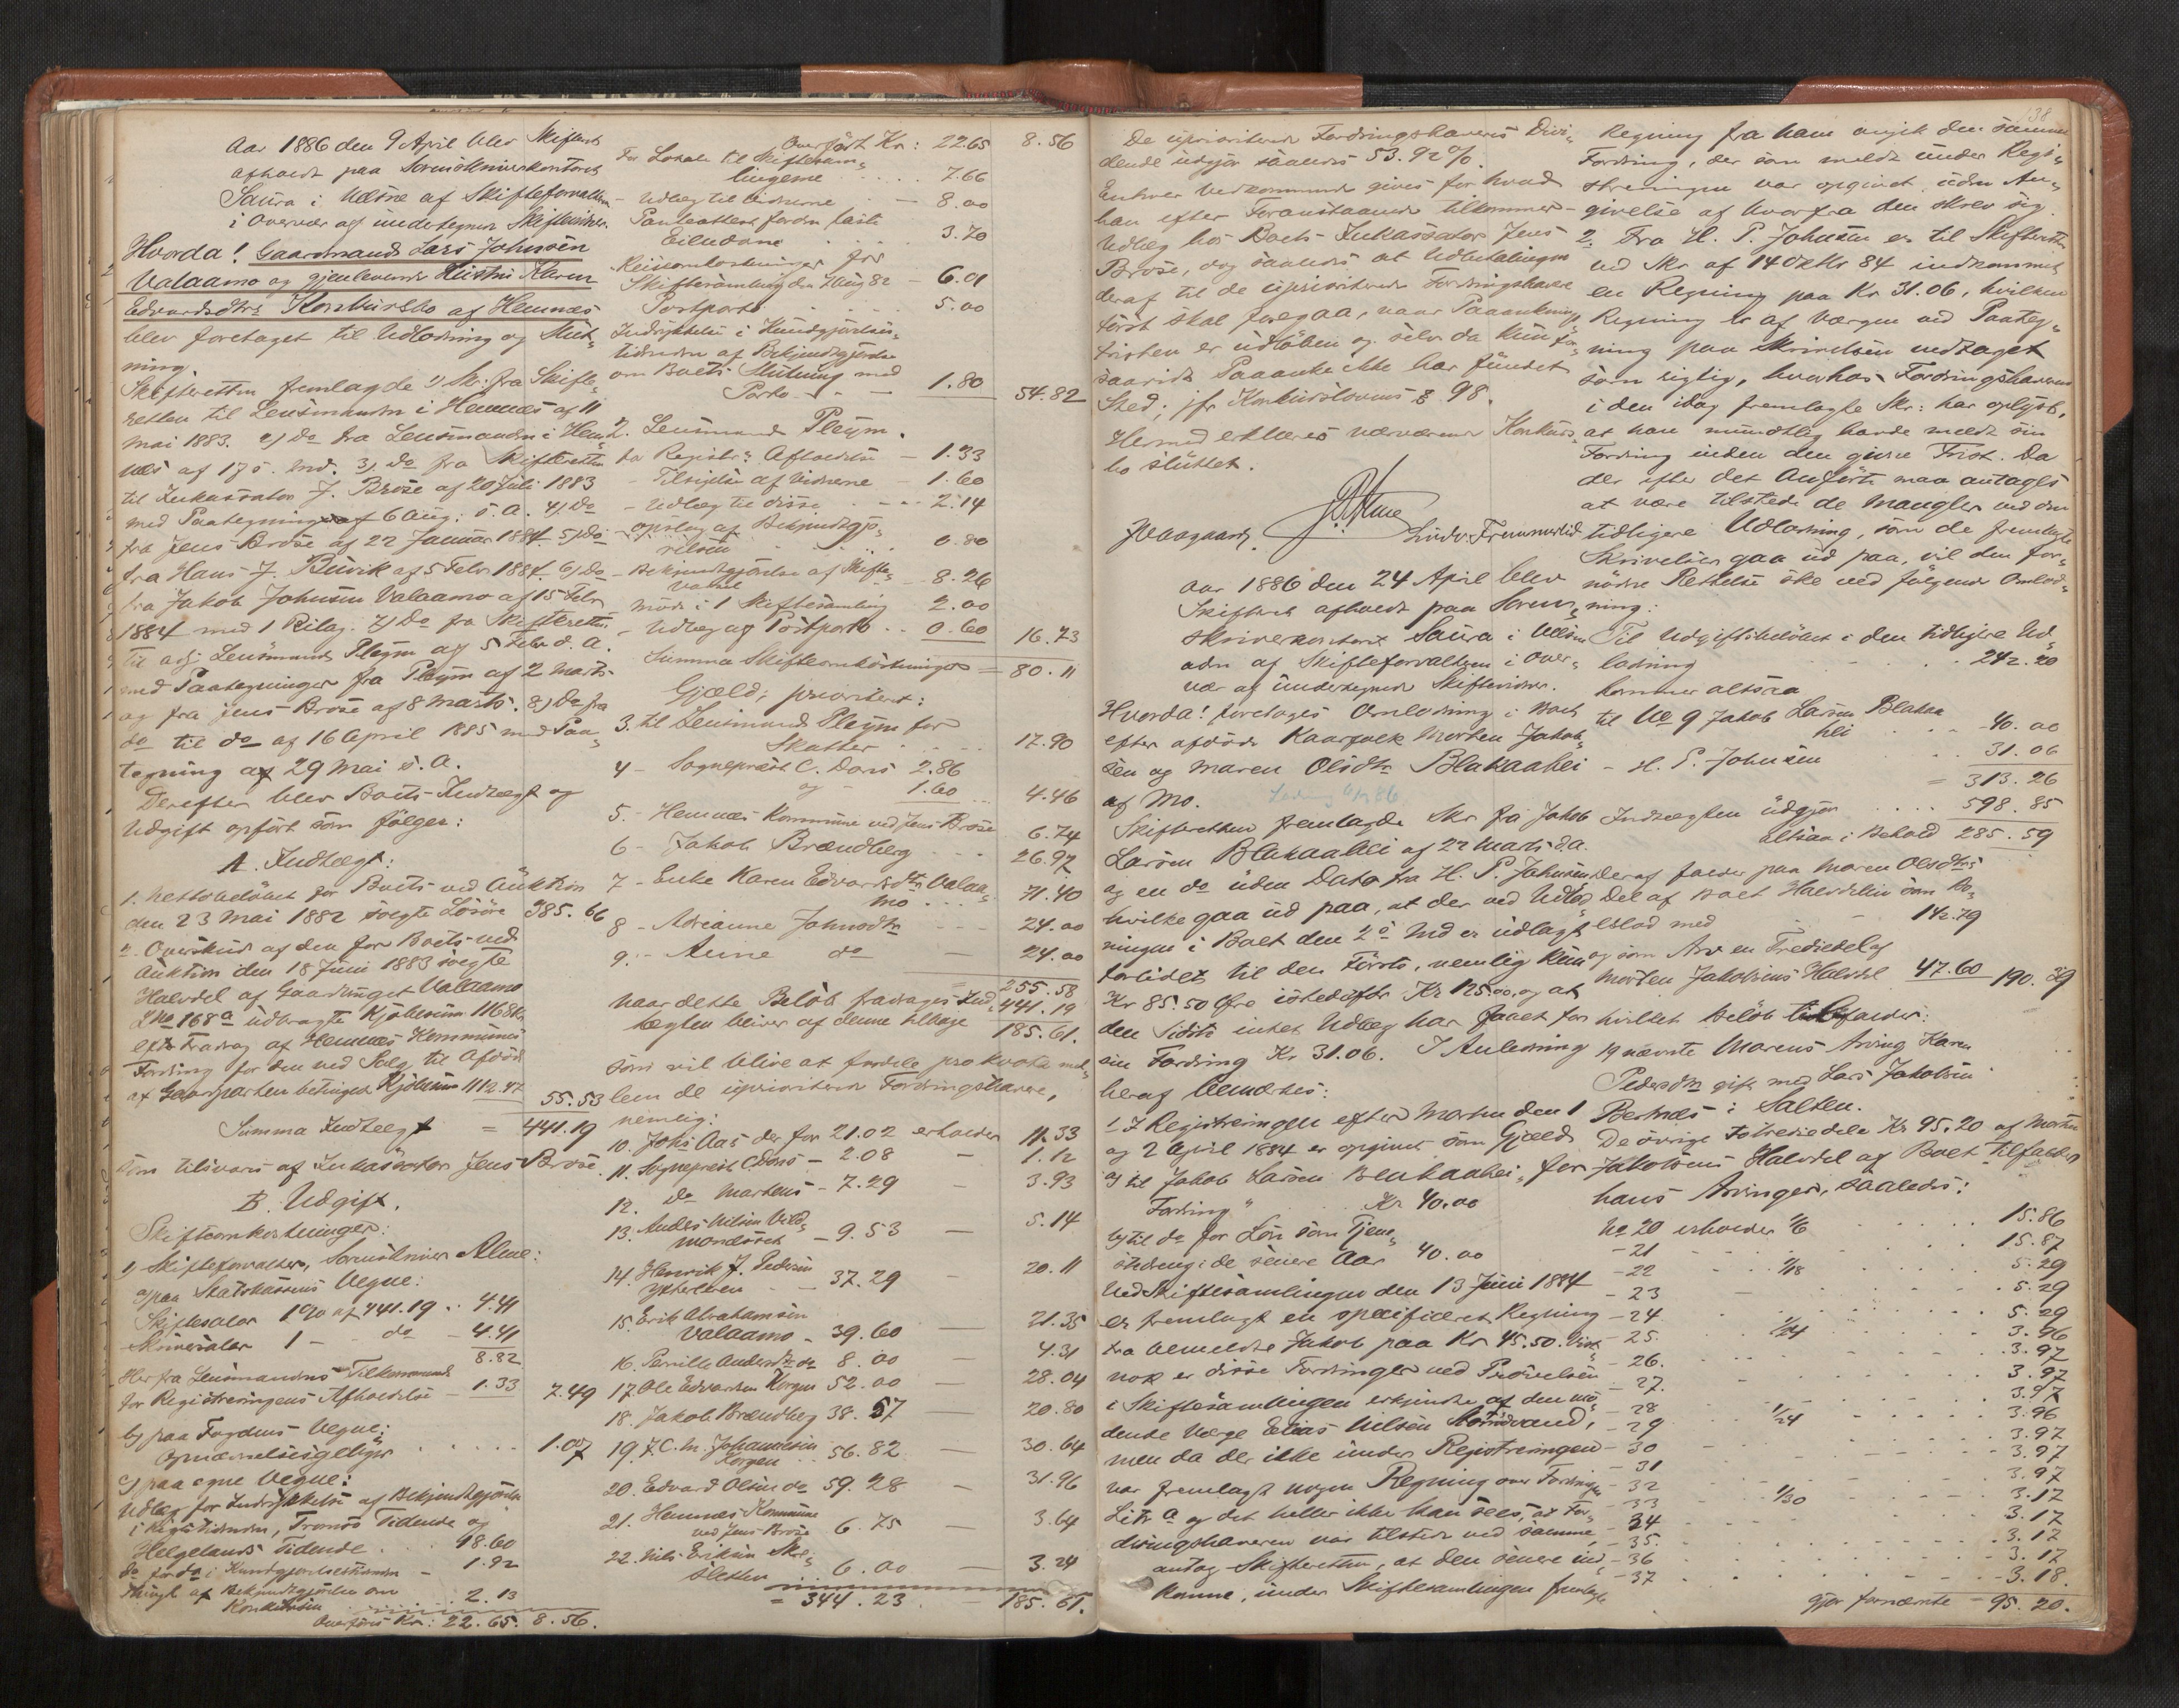 Aar 1886 den 9 April blev Skifteret
afholdt paa Sorenskriverkontoret
Saura i Udørne af Skifteforvalteren
i Overvær af undertegnede Skiftevidner.
Hvorda! Gaardmand Lars Johnsen
Valaamo og gjenlevende Hustru Karen
Edvardsdtrs Konkursbo af Hemnæs
blev foretaget til Udlodning og Slut-
ning.
Skifteretten fremlagde 1) Skr. fra Skifte-
retten til Lensmanden i Hemnæs af 11
Mai 1883. 2) Do fra Lensmanden i Hem-
næs af 17 s. Md. 3) Do fra Skifteretten
til Inkassator J. Brose af 20 Juli 1883
med Paategning af 6 Aug: s. A. 4) Do
fra Jens Brose af 22 Januar 1884. 5) Do
fra Hans J. Buvik af 5 Febr 1884. 6) Do
fra Jakob Johnsen Valaamo af 15 Febr
1884 med 1 Bilag. 7) Do fra Skifteretten
til adj. Lensmand Pleym af 5 Febr d. A.
med Paategninger fra Pleym af 2 Marts
og fra Jens Brose af 8 Marts. 8) Do fra
do til do af 16 April 1885 med Paa-
tegning af 29 Mai s. A.
Derefter blev Boets Indtægt og
Udgift opført som følger:
A. Indtægt:
1. Nettobeløbet for Boets ved Auktion
den 23 Mai 1882 solgte Løsøre 385.66
2. Overskud af den for Boets ved
Auktion den 18 Juni 1883 solgte
Halvdel af Gaardsinget Valaamo
Lno 168a udbragte Kjøbesum 1168 Kr
efter Fradrag af Hemnæs Kommunes
Fordring for den ved Salg til Afdøde
af Gaardparten betingede Kjøbesum 1112.47 55.53
Summa Indtægt = 441.19
som tilsvares af Inkassator Jens Brose.
B. Udgift.
Skifteomkostninger:
1) Skifteforvalter, Sorenskriver Alme:
a) paa Statskassens Vegne:
Skiftesalær 1% af 441.19 .. 4.41
Skriversalær 1 - do - 4.41
8.82
Her fra Lensmandens Tilkommende
for Registreringens Afholdelse - 1.33 7.49
b) paa Fogdens Vegne:
Opnævnelsesgebyr . . . . 1.07
c) paa egne Vegne:
Udlæg for Indrykkelse af Bekjendtgjørelse
i Rigstidenden, Tromsø Tidende og
Helgelands Tidende . . . 18.60
do for do i Kundgjørelsestidenden - 1.92
Thingl. af Bekjendtgjørelse om
Konkursen . . . 2.13
Overføres Kr: 22.65. 8.56.
Overført Kr: 22.65 8.56
For Lokale til Skiftesam-
lingerne . . . . . 7.66
- Udlæg til Vidnerne - 8.00
Panteattest fordn faste
Eiendom . . . 3.70
Reiseomkostninger for
Skiftesamling den 7 Aug 82 - 6.01
Postporto . . . 5.00
Indrykkelse i Kundgjørelses-
tidenden af Bekjendtgjørelse
om Boets Slutning med
Porto - - - 1.80 54.82
2. Lensmand Pleym.
for Registr:s Afholdelse - 1.33
- Tilsigelse af Vidnerne - 1.60
- Udlæg til disse - - - 2.14
- Opslag af Bekjendtgjø-
relsen . . . 0.80
- Bekjendtgjørelse af Skifte-
varsel - 8.26
Møde i 1 Skiftesamling 2.00
- Udlæg af Postporto . . 0.60 16.73
Summa Skifteomkostninger = 80.11
Gjæld, prioriteret:
3. til Lensmand Pleym for
Skatter . . . . 17.90
4 - Sogneprest C. Dons 2.86
og - 1.60 ... 4.46
5. - Hemnæs Kommune ved Jens Brose 6.74
6 - Jakob Brændberg - - - 26.97
7 - Enke Karen Edvardsdtr Valaa-
mo . . . 71.40
8 - Adrianne Johnsdtr - - - 24.00
9. - Anne do - 24.00
= 255.58
naar dette Beløb fradrages Ind- 441.19
tægten bliver af denne tilbage 185.61.
som vil blive at fordele pro kvota mel-
lem de uprioriterede Fordringshavere,
nemlig:
10. Johs Aas der for 21.02 erholder 11.33
11. Sogneprest C. Dons - 2.08 - 1.12
12. do Martens - 7.29 - 3.93
13. Anders Nilsen Vild-
mondset - 9.53 - 5.14
14. Henrik J. Pedersen
Ytterleren - 37.29 - 20.11
15. Erik Abrahamsen
Valaamo - 39.60 - 21.35
16. Pernille Andersdtr do 8.00 - 4.31
17. Ole Edvardsen Korgen 52.00 - 28.04
18. Jakob Brændberg 38.57 - 20.80
19. J. C. M. Johannesen
Korgen .. 56.82 - 30.64
20. Edvard Olsen do 59.28 - 31.96
21. Hemnæs Kommune
ved Jens Brose 6.75 - 3.64
22. Nils Eriksen Skr-
sletten .. 6.00 - 3.24
= 344.23 - 185.61.
De uprioriterede Fordringshaveres Divi-
dende udgjør saaledes 53.92%.
Enhver Vedkommende gives for hvad
han efter Foranstaaende tilkommer
Udlæg hos Boets Inkassator Jens
Brose, dog saaledes at Udbetalingen
deraf til de uprioriterede Fordringshavere
først skal foregaa, naar Paaanknings
fristen er udløben og selv da kun for-
saavidt Paaanke ikke har fundet
Sted; jfr Konkurslovens § 98.
Hermed erklæres nærværende Konkurs-
bo sluttet.
Aar 1886 den 24 April blev
Skifteret afholdt paa Soren-
skriverkontoret Saura i Udørn
aden af Skifteforvalteren i Over-
vær af undertegnede Skiftevidner.
Hvorda! foretages Omlodning i Boet
efter afdøde Kaarfolk Morten Jakob-
sen og Maren Olsdtr Blakaahei
af Mo.
Skifteretten fremlagde Skr fra Jakob
Larsen Blakaahei af 22 Marts d.A.
og en do uden Dato fra H. P. Johnsen,
hvilke gaa ud paa, at der ved Udlod-
ningen i Boet den 2 s. Md er udlagt
forlidet til den Første, nemlig kun
Kr 85.50 Øre istedetfor Kr 125.00, og at
den Sidste intet Udlæg har faaet for
sin Fordring Kr 31.06. I Anledning
heraf bemærkes:
1. I Registreringen efter Morten den 1
og 2 April 1884 er opgivet som Gjæld
a) til Jakob Larsen Blakaahei, for
Fordring" Kr 40.00
b) til do for Løn som Tjene-
stedreng i de senere Aar 40.00
Ved Skiftesamlingen den 13 Juni 1884
er fremlagt en specificeret Regning
fra bemeldte Jakob paa Kr 45.50. Vist-
nok er disse Fordringer ved Prøvelsen
i Skiftesamlingen erkjendte af den mø-
dende Værge Elias Nilsen Stormdvand,
men da der ikke under Registreringen
var fremlagt nogen Regning over Fordringen
Litr a og det heller ikke kan sees, at For-
dringshaveren var tilstede ved samme,
antog Skifteretten, at den senere ind-
komne, under Skiftesamlingen fremlagte
138
Regning fra ham angik den samme
Fordring, der som meldt under Regi-
streringen var opgivet uden An-
givelse af hvorfra den skrev sig.
2. Fra H. P. Johnsen er til Skifteretten
ved Skr af 14 Oktbr 84 indkommet
en Regning paa Kr 31.06, hvilken
Regning er af Værgen ved Paateg-
ning paa Skrivelsen vedtaget
som rigtig, hvorhos Fordringshaveren
i den idag fremlagte Skr: har oplyst,
at han mundtlig havde meldt sin
Fordring inden den givne Frist. Da
der efter det Anførte maa antages
at være tilstede de Mangler ved den
tidligere Udlodning, som de fremlagte
Skrivelser gaa ud paa, vil den for-
nødne Rettelse ske ved følgende Omlod-
ning:
Til Udgiftsbeløbet i den tidligere Ud-
lodning . . . . 242.20
kommer altsaa
til No 9 Jakob Larsen Blakaa
hei . . . 40.00
- H. P. Johnsen . . 31.06
= 313.26
Indtægten udgjør . . . . 598.85
altsaa i Behold 285.59
Deraf falder paa Maren Olsdtrs
Del af Boet Halvdelen som Bo-
eslod med - 142.79
og som Arv en Trediedel af
Morten Jakobsens Halvdel 47.60 190.39
hvilket Beløb tilfalder:
19 nævnte Marens Arving Karen
Pedersdtr gift med Lars Jakobsen
Bertnæs i Salten.
De øvrige Totrediedele Kr 95.20 af Morten
Jakobsens Halvdel af Boet tilfalder
hans Arvinger, saaledes:
No 20 erholder 1/6 . . . . 15.86
- 21 . . . . 15.87
- 22 1/18 . . . . 5.29
- 23 . . . . 5.29
- 24 . . . . 5.29
- 25. 1/24 . . . . 3.96
- 26. . . . . 3.97
- 27. . . . . 3.97
- 28 . . . . 3.97
- 29 1/24 . . . . 3.96
- 30 . . . . 3.97
- 31 . . . . 3.97
- 32 . . . . 3.97
- 33 1/30 . . . . 3.17
- 34 . . . . 3.17
- 35. . . . . 3.17
- 36 . . . . 3.17
- 37 . . . . 3.18.
gjør fornævnte - 95.20.